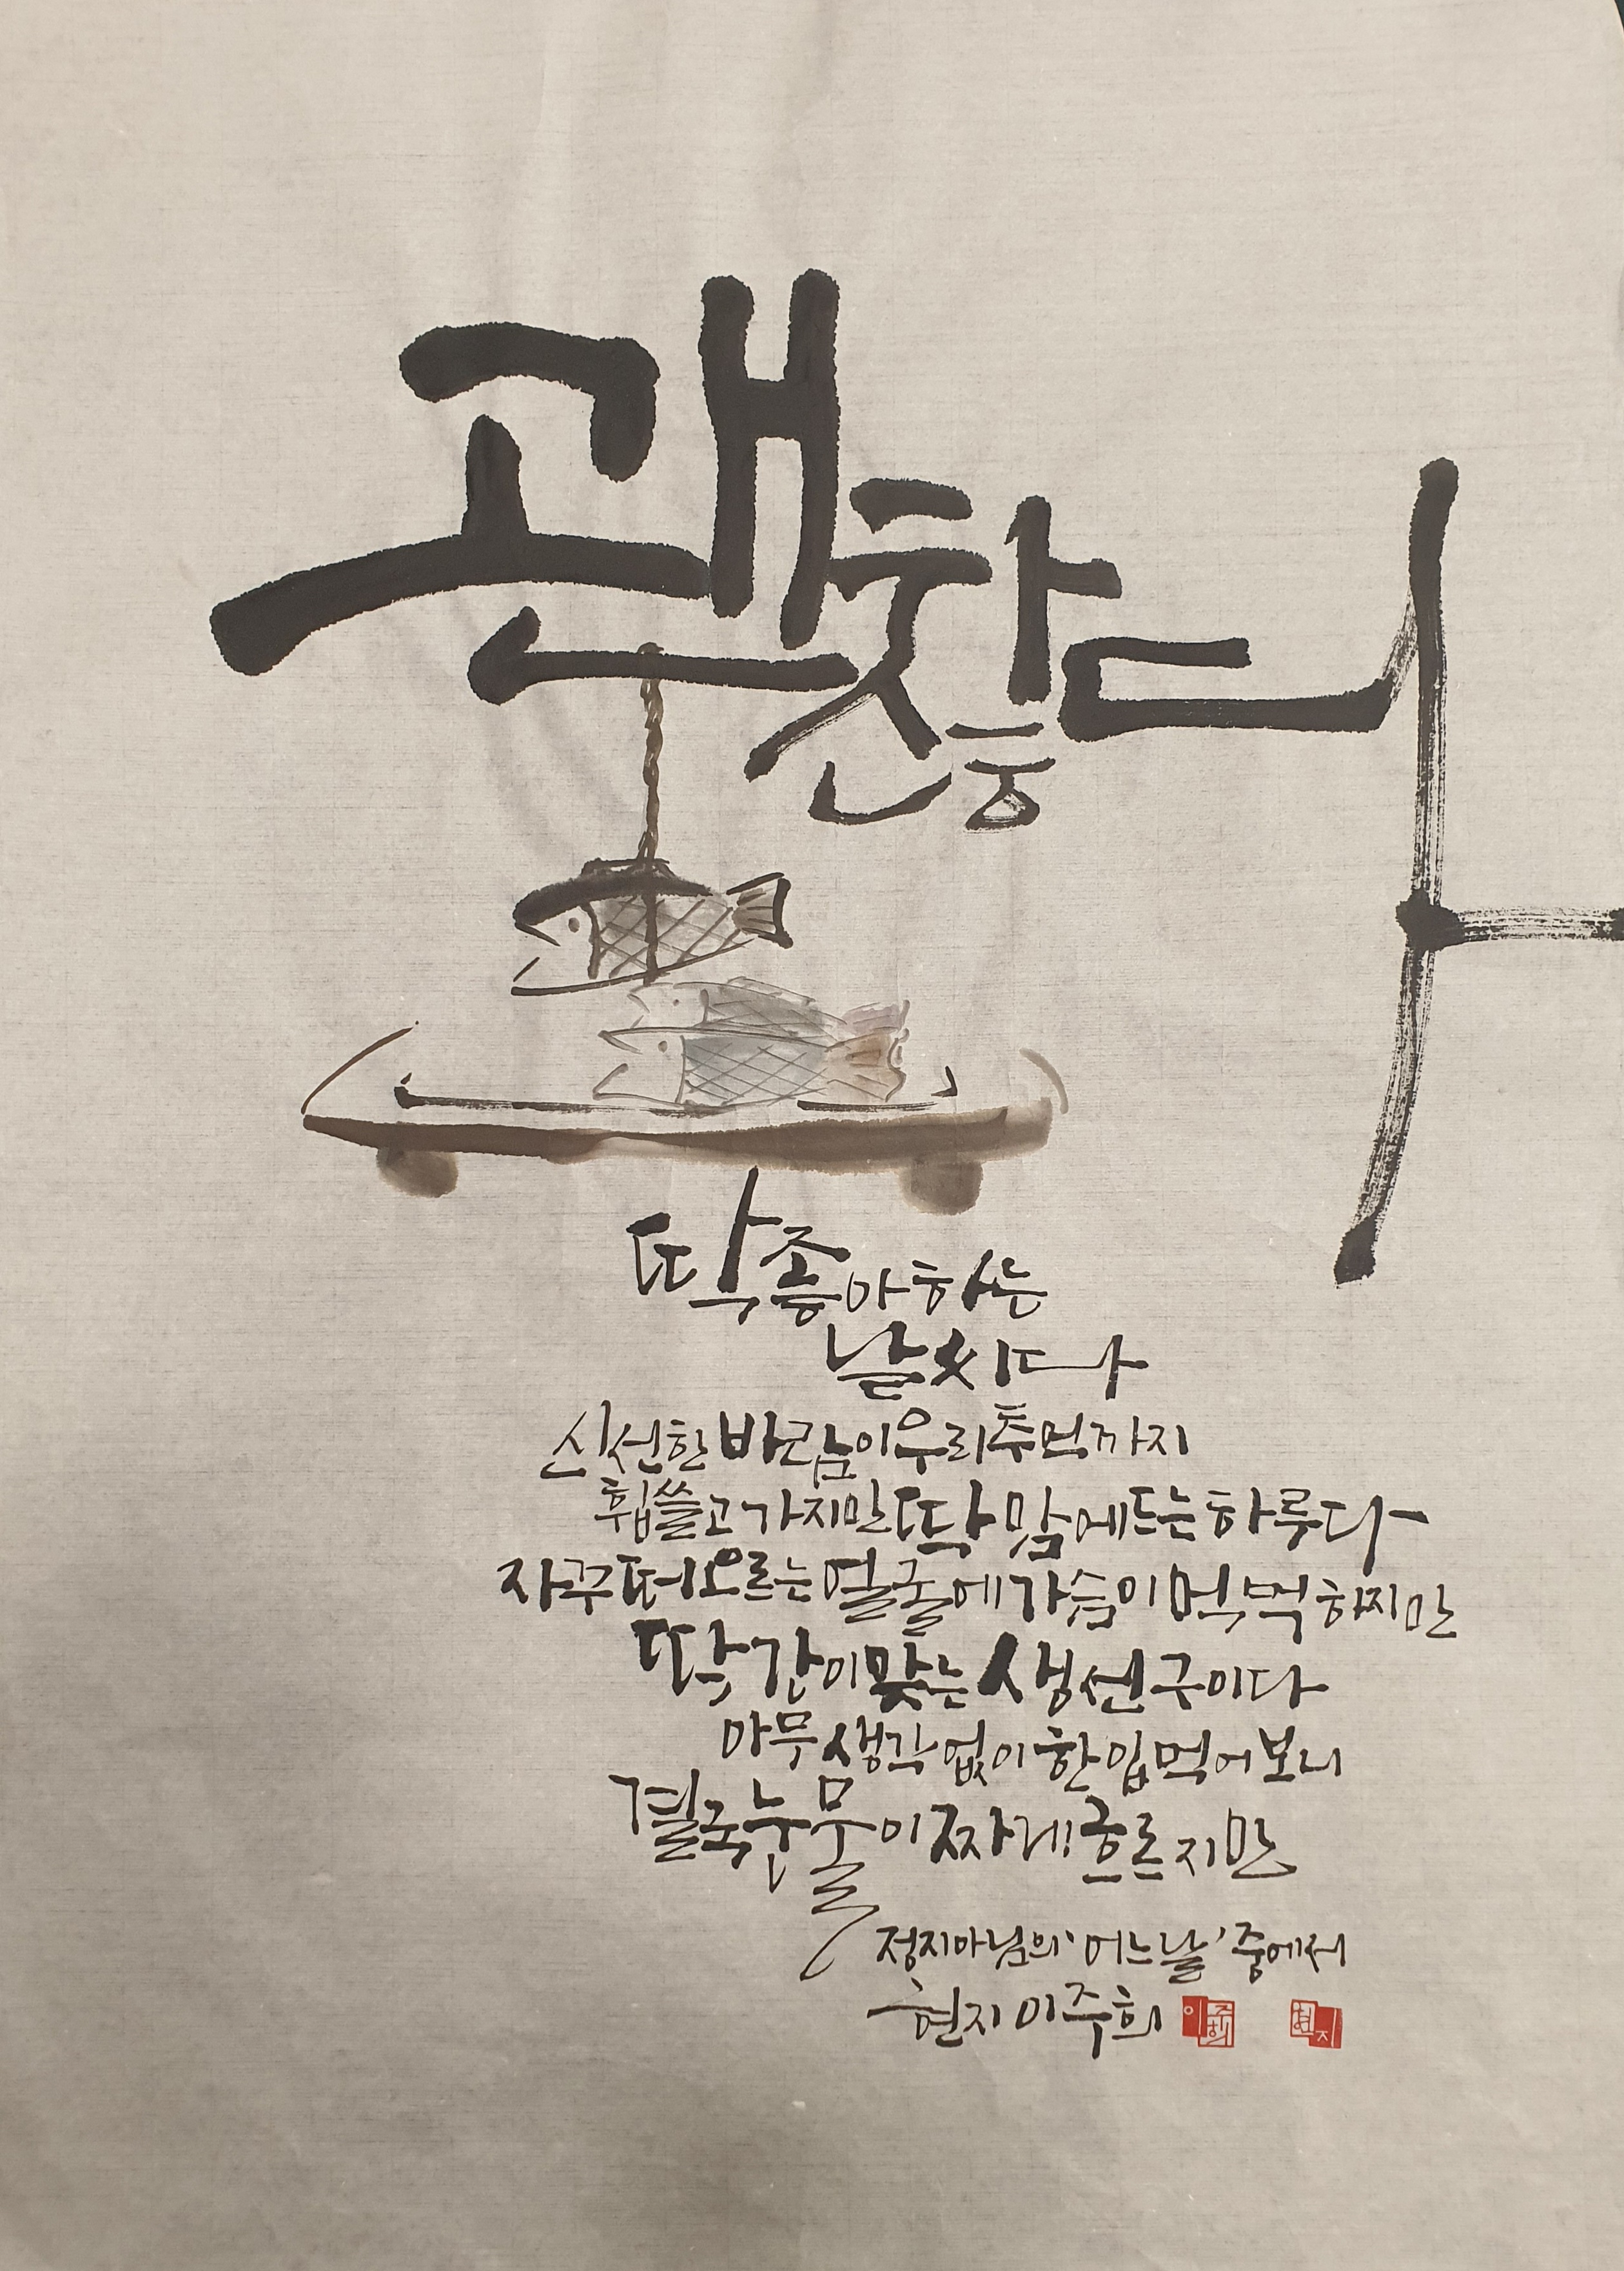 괜찮다
딱 좋아하는
날씨다
신선한 바람이 우리 추억까지
휩쓸고 가지만 딱 맘에 드는 하루다
자꾸 떠오르는 얼굴에 가슴이 먹먹하지만
딱 간이 맞는 생선구이다
아무 생각 없이 한입 먹어보니
결국 눈물이 짜게 흐르지만
정지아님의 '어느 날' 중에서
현지 이주희 이주희 현지